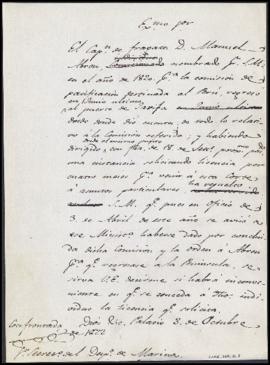 Exmo Sor
El Capn. de fragata D. Manuel
Abreu, nombrado pr. S.M.
en el año de 1820 pa. la comision de
pacificacion destinada al Perú, regresó
en Junio ultimo
al puerto de
donde dio cuenta de todo lo relati-
vo à la Comision referida; y habiendo
dirigido, con fha. de 18 de
una instancia solicitando licencia por
cuatro meses pa. venir à esta Corte
à asuntos particulares
S.M. qe. pues en Oficio de
3. de Abril de este año se avisó à
ese Ministo. haberse dado por concluida
dicha Comision y la orden à Abreu
pa. qe. regresase à la Peninsula, se
sirva V.E. decirme si habrá inconve-
niente en qe. se conceda à
individuo la licencia qe. solicita.
Dios &a. Palacio 3. de Octubre
de 1822
Confrontada
Sr. Secreto. del Despo. de Marina